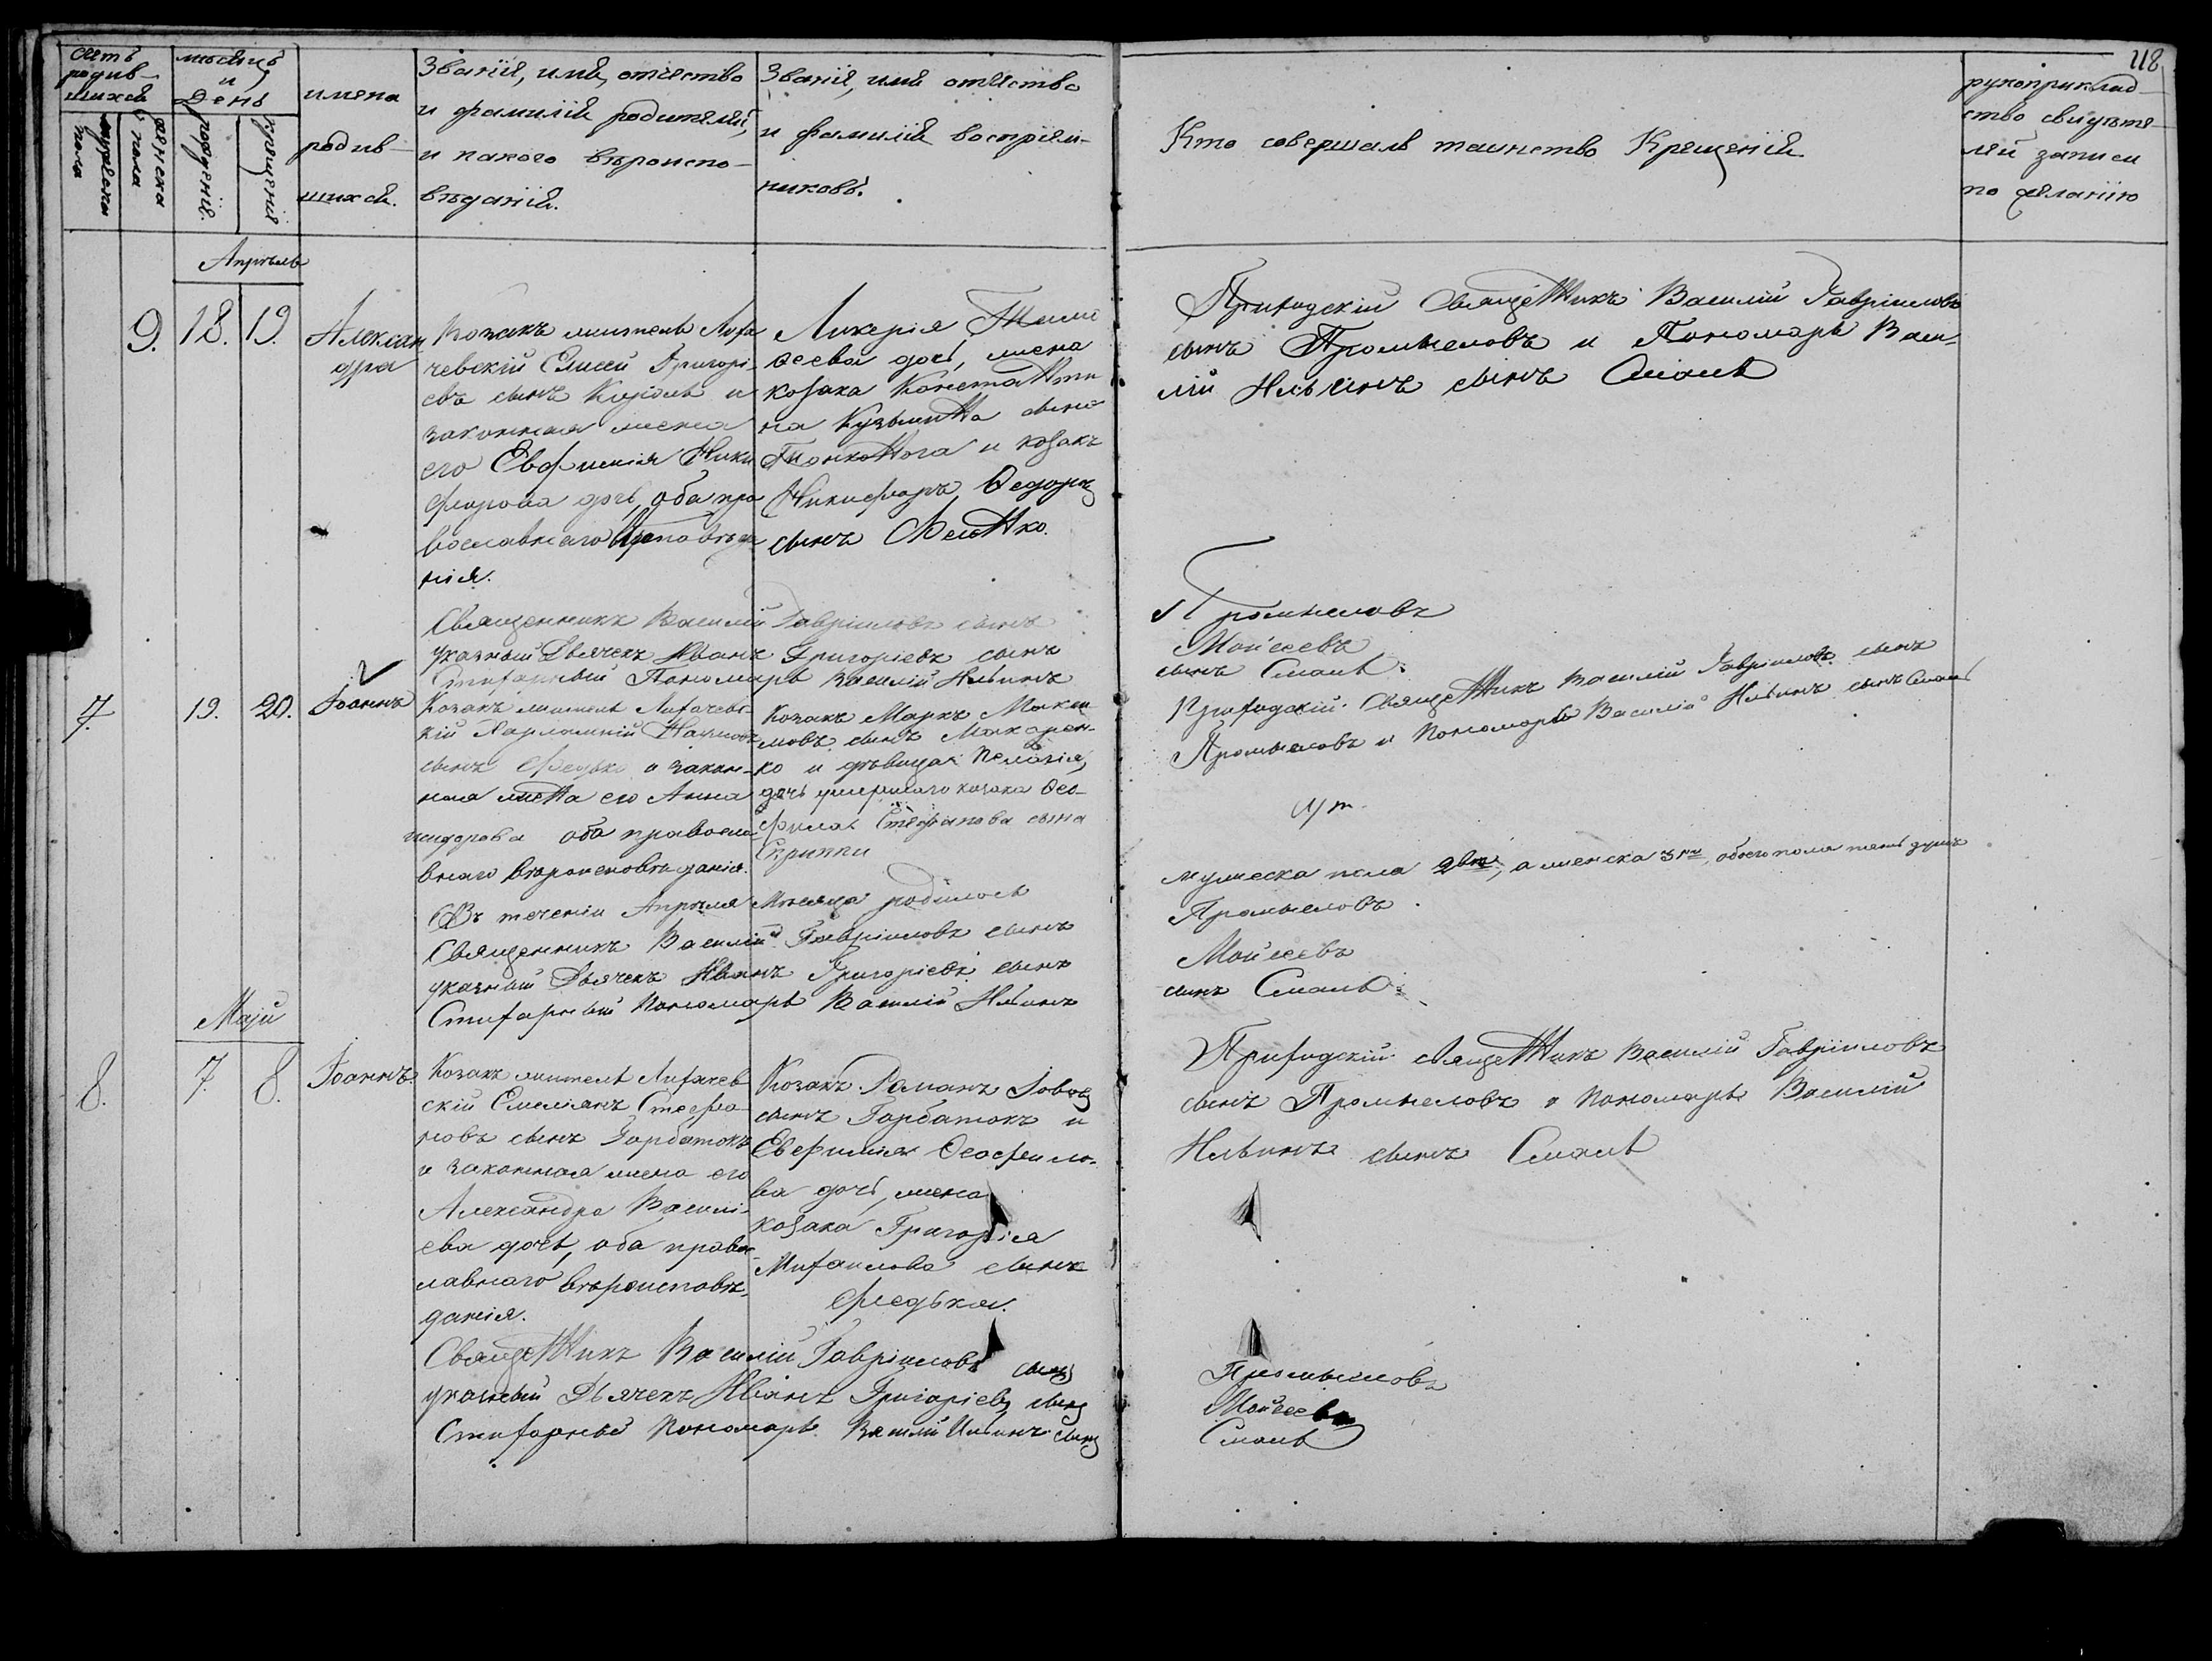 118
Счетъ родив-
шихся
мужеска пола
женска пола
мѣсяцъ
и
День
рожденія.
крещенія
имена
родив-
шихся.
Званіе, имя, отчество
и фамилія родителей,
и какого вѣроиспо-
вѣданія.
Званіе, имя отчество
и фамилія воспріем-
никовъ.
Кто совершалъ таинство Крещенія.
рукоприклад-
ство свидѣте-
лей записи
по желанію
Апрѣль
9. 18. 19.
Алексан
дра
Козакъ житель Лиха
чевскій Елисей Григорі-
евъ сынъ и
законная жена
его Евфимія Ники
форова дочь, оба пра
вославнаго вѣроисповѣда
нія.
Ликерія Тимо
ѳеева дочь, жена
козака Константи
на Кузьмина сына
и козакъ
Никифоръ Ѳедоръ
сынъ
Приходскій Священникъ Василій Гавріиловъ
сынъ Промыслов и Пономарь Васи-
лій Ильинъ сынъ Смаль
Священникъ Василій Гавріиловъ сынъ
указный Дьячекъ Иванъ Григоріевъ сынъ
Стихарный Пономарь Василій Ильинъ
Промысловъ
Мойсеевъ
сынъ Смаль.
7. 19. 20. Іоаннъ
Козакъ житель Лихачевс-
кій Харлампій
сынъ Федько и закон-
ная жена его Анна
Исидорова оба православ
внаго вѣроисповѣданія.
Козакъ Марко Макси
мовъ сынъ Макарен-
ко и дѣвица Пелагія,
дочь умершаго козака Ѳео-
фила Стефанова сына
Скрипки
Приходскій Священникъ Василій Гавріиловъ сынъ
Промысловъ и Пономарь Василій Ильинъ сынъ Смаль
Въ теченіи Апрѣля Мѣсяца родилось
мужеска пола два, а женска 3ри, обоего пола пять душъ
Священникъ Василій Гавріиловъ сынъ
указный Дьячекъ Иванъ Григоріевъ сынъ
Стихарный Пономарь Василій Ильинъ
Промысловъ.
Мойсеевъ
сынъ Смаль.
Маій
8. 7. 8. Іоаннъ
Козакъ житель Лихачев
скій Емеліанъ Стефа-
новъ сынъ Горбатокъ
и законная жена его
Александра Василі-
ева дочь, оба правос
лавнаго вѣроисповѣ-
данія.
Козакъ Романъ Іововъ
сынъ Горбатокъ и
Евфимія Ѳеофило-
ва дочь, жена
козака Григорія
Михаилова сына
Федька.
Приходскій Священникъ Василій Гавріиловъ
сынъ Промысловъ и Пономарь Василій
Ильинъ сынъ Смаль
Священникъ Василій Гавріиловъ сынъ
указный Дьячекъ Иванъ Григоріевъ сынъ
Стихарный Пономарь Василій Ильинъ сынъ
Промысловъ
Мойсеевъ
Смаль